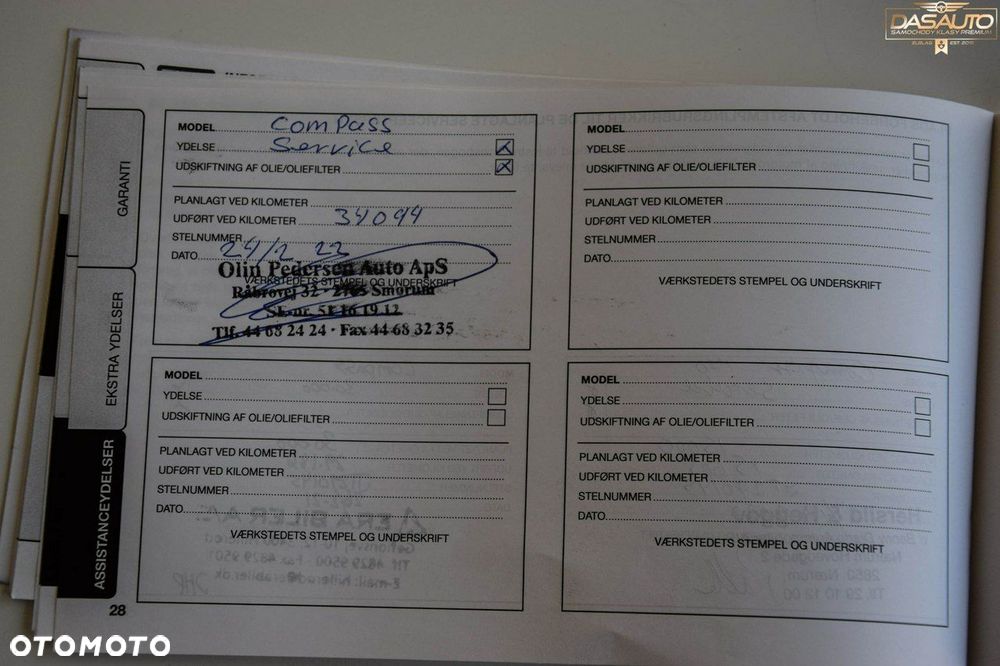 DASAUTO
SAMOCHODY KLASY PREMIUM
EST 2011
GARANTI
EKSTRA YDELSER
ASSISTANCEYDELSER
MODEL Compass
YDELSE Service
UDSKIFTNING AF OLIE/OLIEFILTER
PLANLAGT VED KILOMETER
UDFØRT VED KILOMETER 34094
STELNUMMER
DATO 24/2 23
Olin Pedersen Auto ApS
VÆRKSTEDETS STEMPEL OG UNDERSKRIFT
Råbrovej 32 · 2765 Smørum
51 16 19 12
Tlf. 44 68 24 24 · Fax 44 68 32 35
MODEL
YDELSE
UDSKIFTNING AF OLIE/OLIEFILTER
PLANLAGT VED KILOMETER
UDFØRT VED KILOMETER
STELNUMMER
DATO
VÆRKSTEDETS STEMPEL OG UNDERSKRIFT
MODEL
YDELSE
UDSKIFTNING AF OLIE/OLIEFILTER
PLANLAGT VED KILOMETER
UDFØRT VED KILOMETER
STELNUMMER
DATO
VÆRKSTEDETS STEMPEL OG UNDERSKRIFT
MODEL
YDELSE
UDSKIFTNING AF OLIE/OLIEFILTER
PLANLAGT VED KILOMETER
UDFØRT VED KILOMETER
STELNUMMER
DATO
VÆRKSTEDETS STEMPEL OG UNDERSKRIFT
28
OTOMOTO